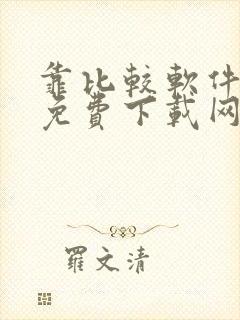 靠比較軟件
免費下載网
羅文清